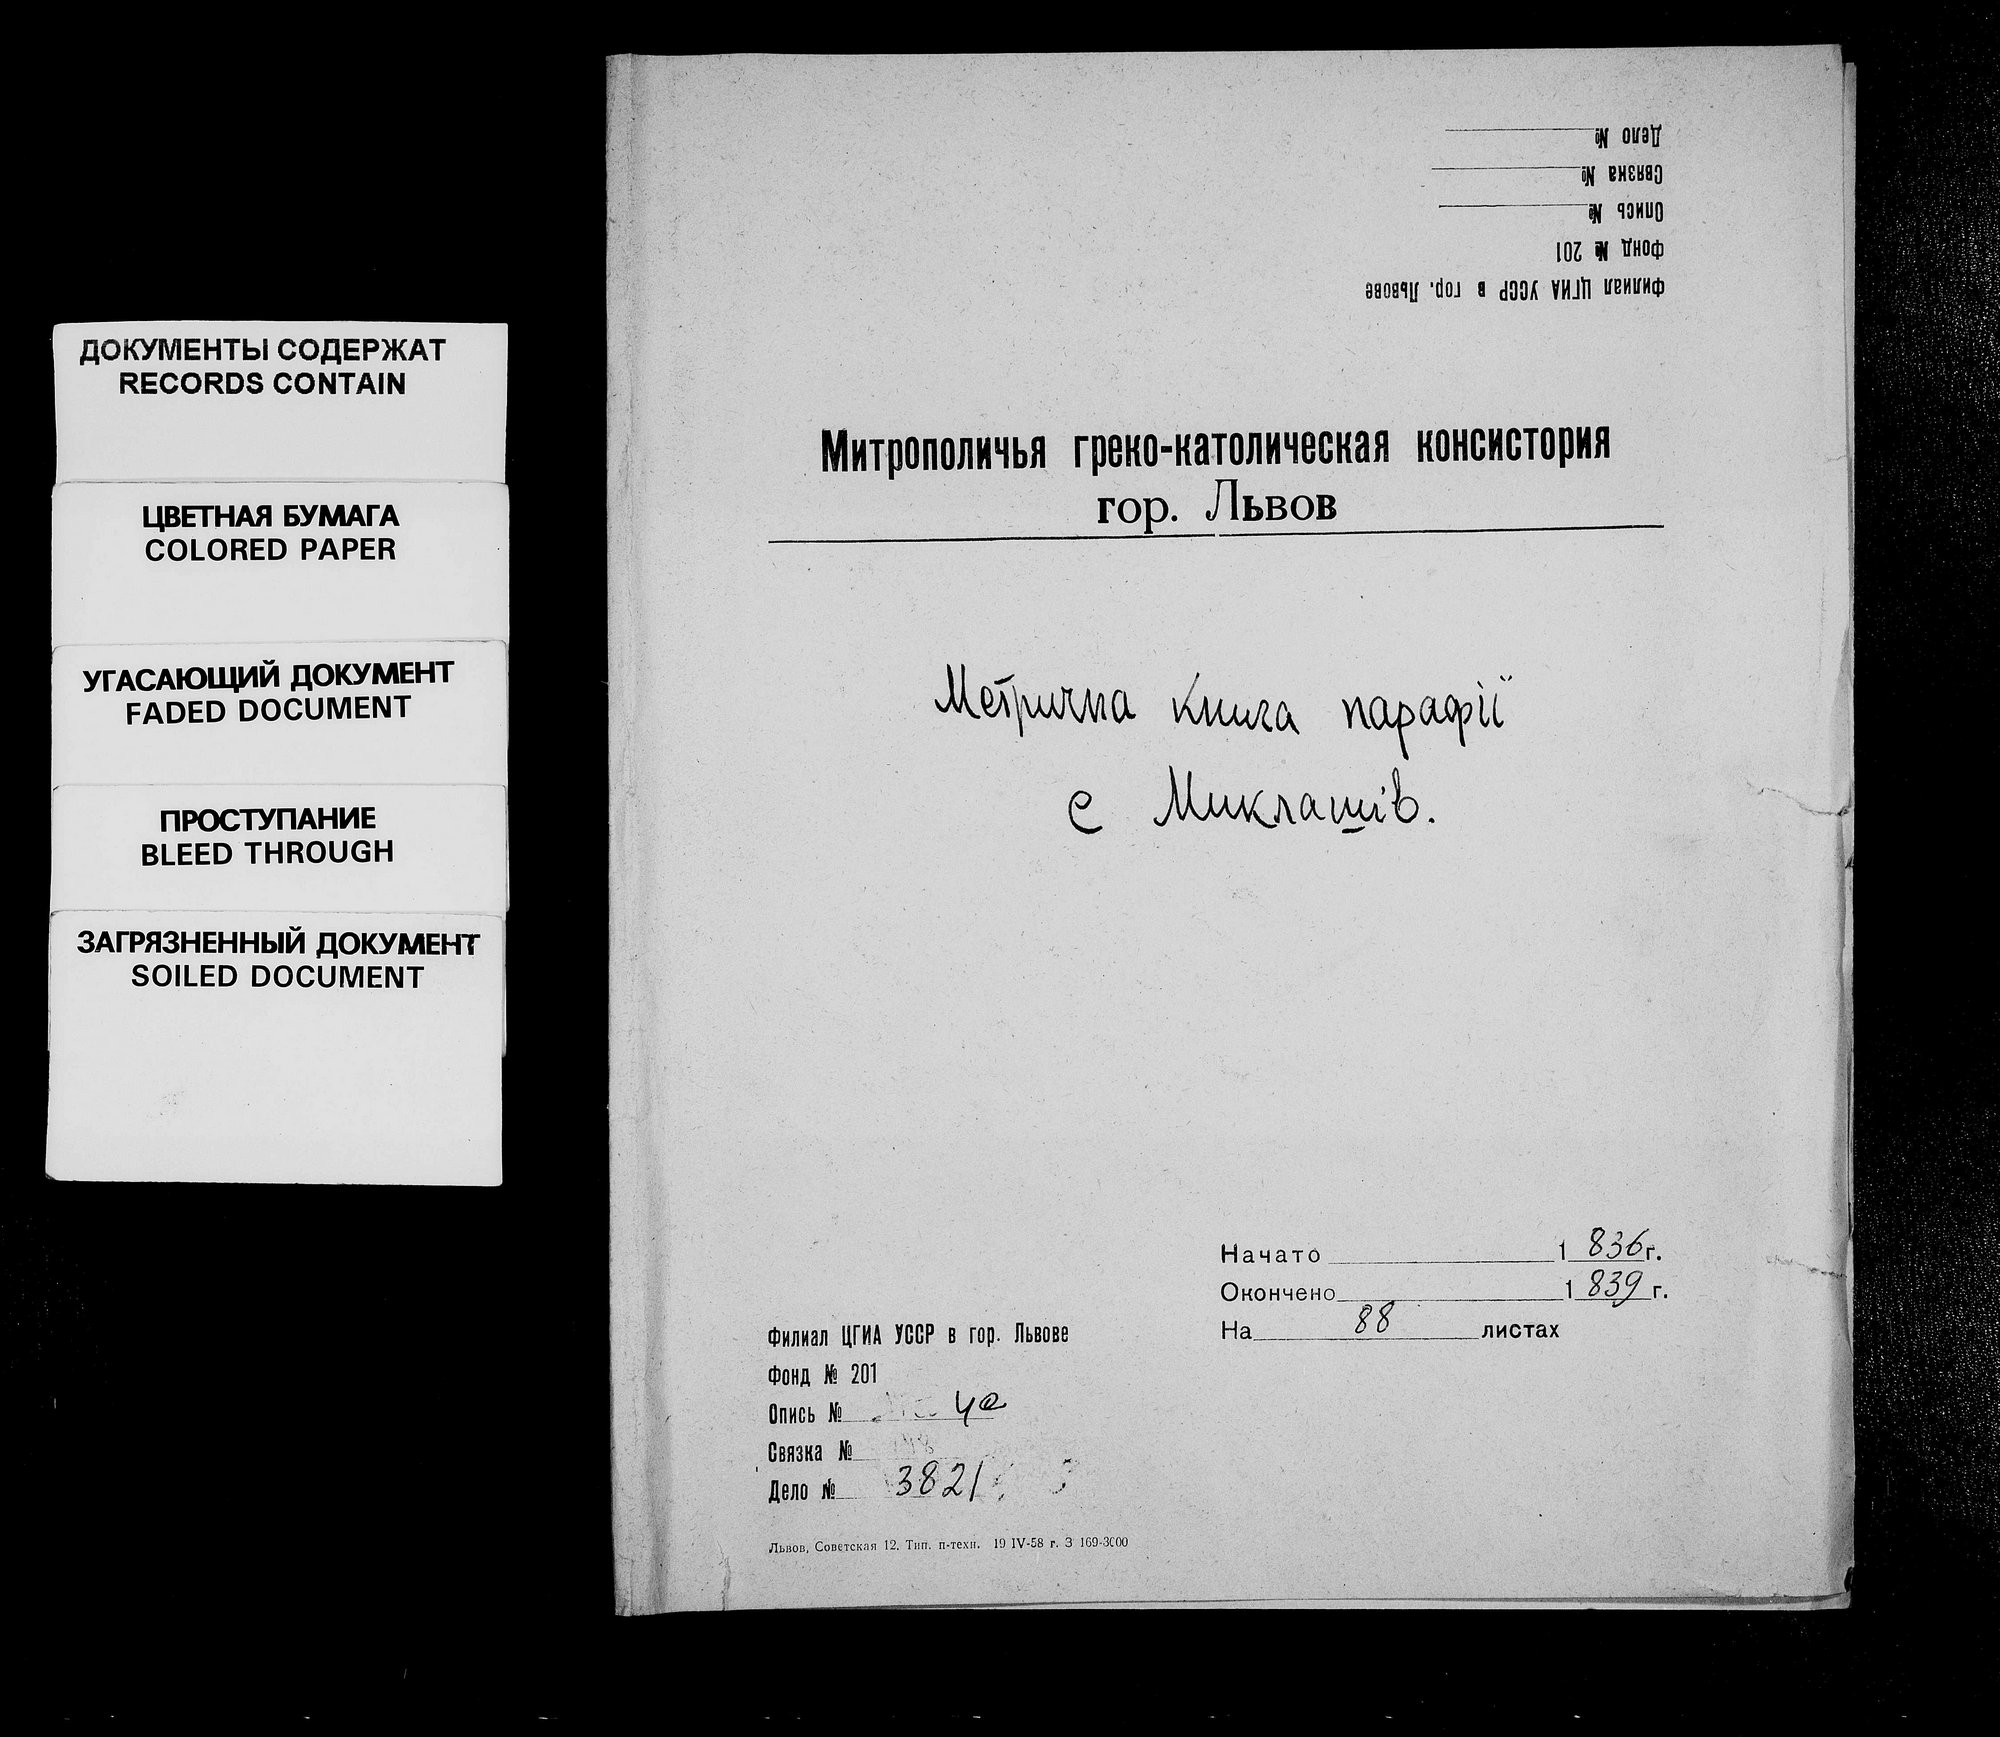 ДОКУМЕНТЫ СОДЕРЖАТ
RECORDS CONTAIN
ЦВЕТНАЯ БУМАГА
COLORED PAPER
УГАСАЮЩИЙ ДОКУМЕНТ
FADED DOCUMENT
ПРОСТУПАНИЕ
BLEED THROUGH
ЗАГРЯЗНЕННЫЙ ДОКУМЕНТ
SOILED DOCUMENT
Филиал ЦГИА УССР в гор. Львове
Фонд № 201
Опись №
Связка №
Дело №
Митрополичья греко-католическая консистория
гор. Львов
Метрична книга парафії
с Миклашів.
Начато 1 836 г.
Окончено 1 839 г.
На 88 листах
Филиал ЦГИА УССР в гор. Львове
Фонд № 201
Опись № 4а
Связка №
Дело № 3821
Львов, Советская 12. Тип. п-техн. 19 IV-58 г. З 169-3000